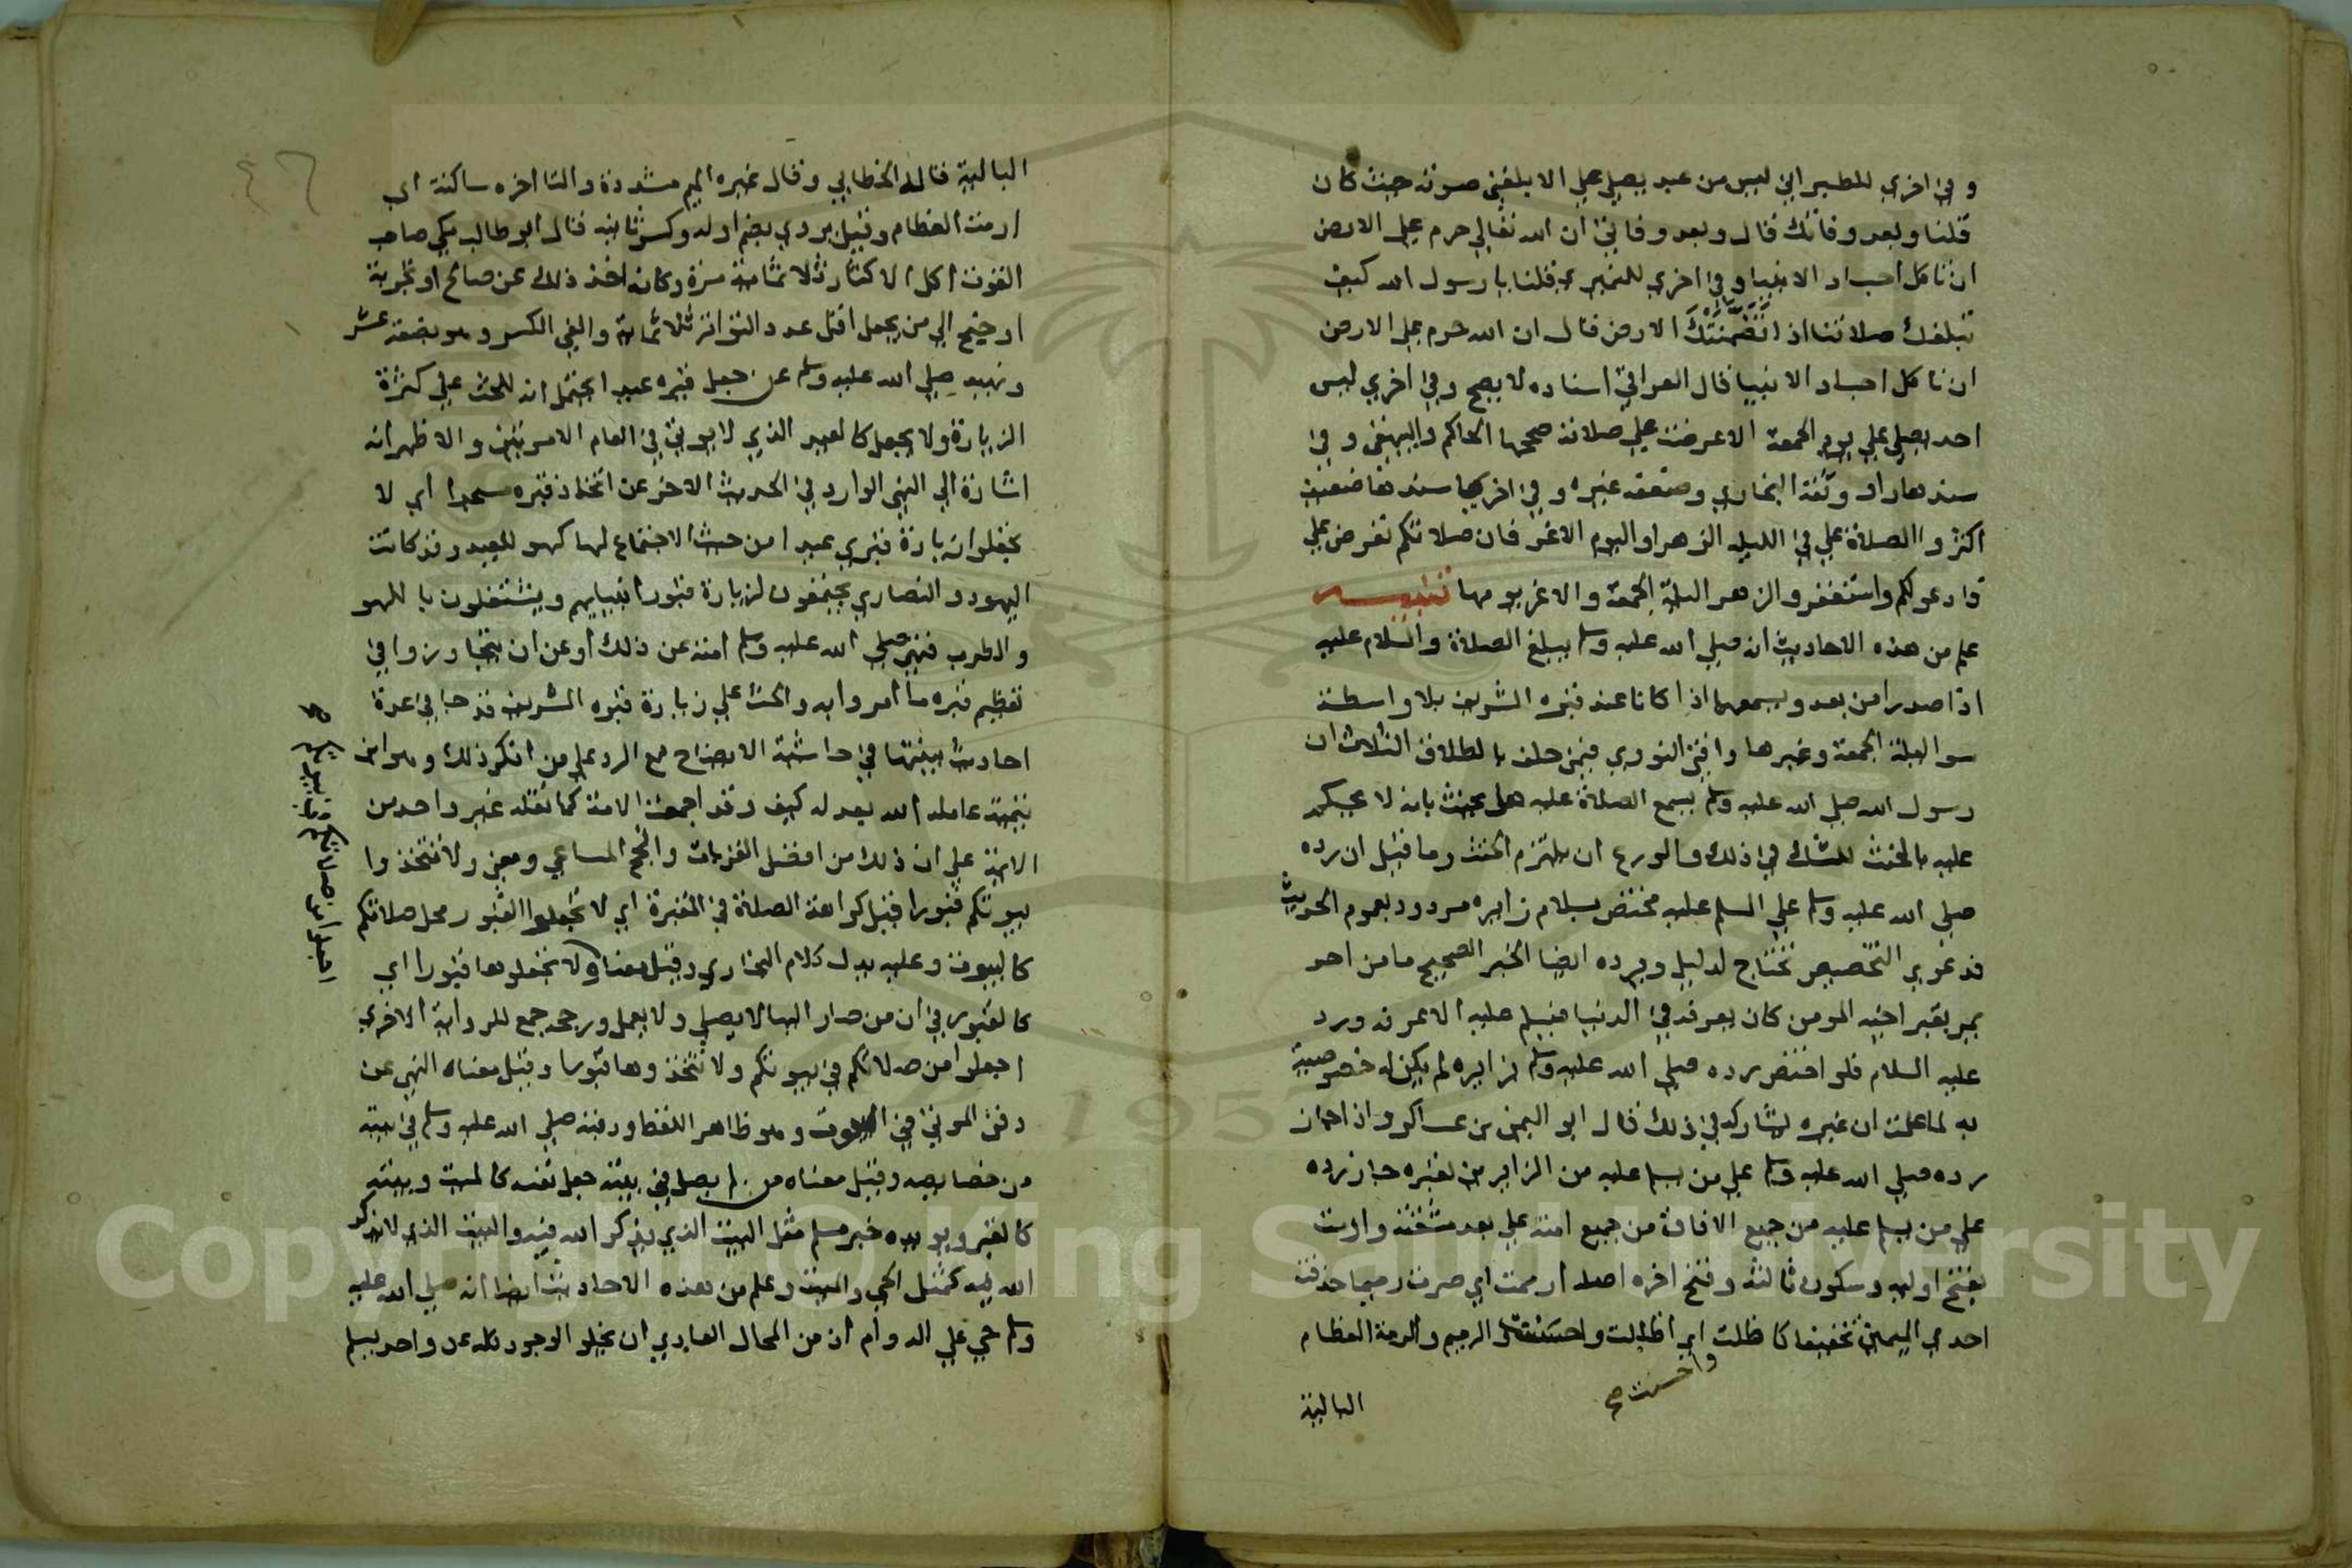 وفي اخري للطبراني ليس من عبد يصلي علي الا بلغني صوته حيث كان
قلنا وبعد وفاتك قال وبعد وفاتي ان الله تعالي حرم علي الارض
ان تاكل اجساد الانبيا وفي اخري للنميري قلنا يا رسول الله كيف
تبلغك صلاتنا اذا تضمنتك الارض قال ان الله حرم علي الارض
ان تاكل اجساد الانبيا قال العراقي اسناده لا يصح وفي اخري ليس
احد يصلي علي يوم الجمعة الا عرضت علي صلاته صححها الحاكم والبيهقي وفي
سندها راو وثقه البخاري وضعفه غيره وفي اخري سندها ضعيف
اكثروا الصلاة علي في الليلة الزهرا واليوم الاغر فان صلاتكم تعرض علي
فادعو لكم واستغفر والزهرا ليلة الجمعة والاغر يومها تنبيه
علم من هذه الاحاديث انه صلي الله عليه وسلم يبلغ الصلاة والسلام عليه
اذا صدرا من بعد ويسمعهما اذا كانا عند قبره الشريف بلا واسطة
سوا ليلة الجمعة وغيرها وافتي النووي فيمن حلف بالطلاق الثلاث ان
رسول الله صلي الله عليه وسلم يسمع الصلاة عليه هل يحنث بانه لا يحكم
عليه بالحنث للشك في ذلك والورع ان يلتزم الحنث وما قيل ان رده
صلي الله عليه وسلم علي المسلم عليه مختص بسلام زايره مردود بعموم الحديث
فدعوي التخصيص تحتاج لدليل ويرده ايضا الخبر الصحيح ما من احد
يمر بقبر اخيه المومن كان يعرفه في الدنيا فيسلم عليه الا عرفه ورد
عليه السلام فلو اختص رده صلي الله عليه وسلم بزايره لم يكن له خصوصية
به لما علمت ان غيره يشاركه في ذلك قال ابو اليمن بن عساكر واذا جاز
رده صلي الله عليه وسلم علي من يسلم عليه من الزايرين لقبره جاز رده
علي من يسلم عليه من جميع الافاق من جميع امته علي بعد مشقته وارمت
بفتح اوليه وسكون ثالثه وفتح اخره اصله ارممت اي صرت رميما حذفت
احدي الميمين تخفيفا كا ظلت اي اظللت الرميم والرمة العظام
واحست صح
البالية
البالية قاله الخطابي وقال غيره الميم مشددة والتا اخره ساكنة اي
ارمت العظام وقيل يروي بضم اوله وكسر ثانيه قال ابو طالب مكي صاحب
القوت اكل الاكثار ثلاثمائة مرة وكانه اخذ ذلك عن صالح او تجربة
او جنح الي من يجعل اقل عدد التواتر ثلاثمائة والغي الكسر وهو بضعة عشر
ونهيه صلي الله عليه وسلم عن جعل قبره عيدا يحتمل انه للحث علي كثرة
الزيارة ولا يجعل كالعيد الذي لا يوتي في العام الا مرتين والاظهر انه
اشارة الي النهي الوارد في الحديث الاخر عن اتخاذ قبره مسجدا اي لا
تجعلوا زيارة قبري عيدا من حيث الاجتماع لها كهو للعيد وقد كانت
اليهود والنصاري يجتمعون لزيارة قبور انبيايهم ويشتغلون باللهو
والطرب فنهي صلي الله عليه وسلم امته عن ذلك او عن ان يتجاوزوا في
تعظيم قبره ما امروا به والحث علي زيارة قبره الشريف قد جا في عدة
احاديث بينتها في حاشية الايضاح مع الرد علي من انكر ذلك وهو ابن
تيمية عامله الله بعدله كيف وقد اجمعت الامة كما نقله غير واحد من
الايمة علي ان ذلك من افضل القربات وانجح المساعي ومعني ولا تتخذوا
بيوتكم قبورا قيل كراهة الصلاة في المقبرة اي لا تجعلوا القبور محل صلاتكم
كالبيوت وعليه يدل كلام البخاري وقيل معناه ولا تجعلوها قبورا اي
كالقبور في ان من صار اليها لا يصلي ولا يعمل ورجحه جمع للرواية الاخري
اجعلوا من صلاتكم في بيوتكم ولا تتخذوها قبورا وقيل معناه النهي عن
دفن الموتي في البيوت وهو ظاهر اللفظ ودفنه صلي الله عليه وسلم في بيته
من خصايصه وقيل معناه من لم يصل في بيته جعل نفسه كالميت وبيته
كالقبر ويويده خبر مسلم مثل البيت الذي يذكر الله فيه والبيت الذي لا يذكر
الله فيه كمثل الحي والميت وعلم من هذه الاحاديث ايضا انه صلي الله عليه
وسلم حي علي الدوام اذ من المحال العادي ان يخلو الوجود كله عن واحد يسلم